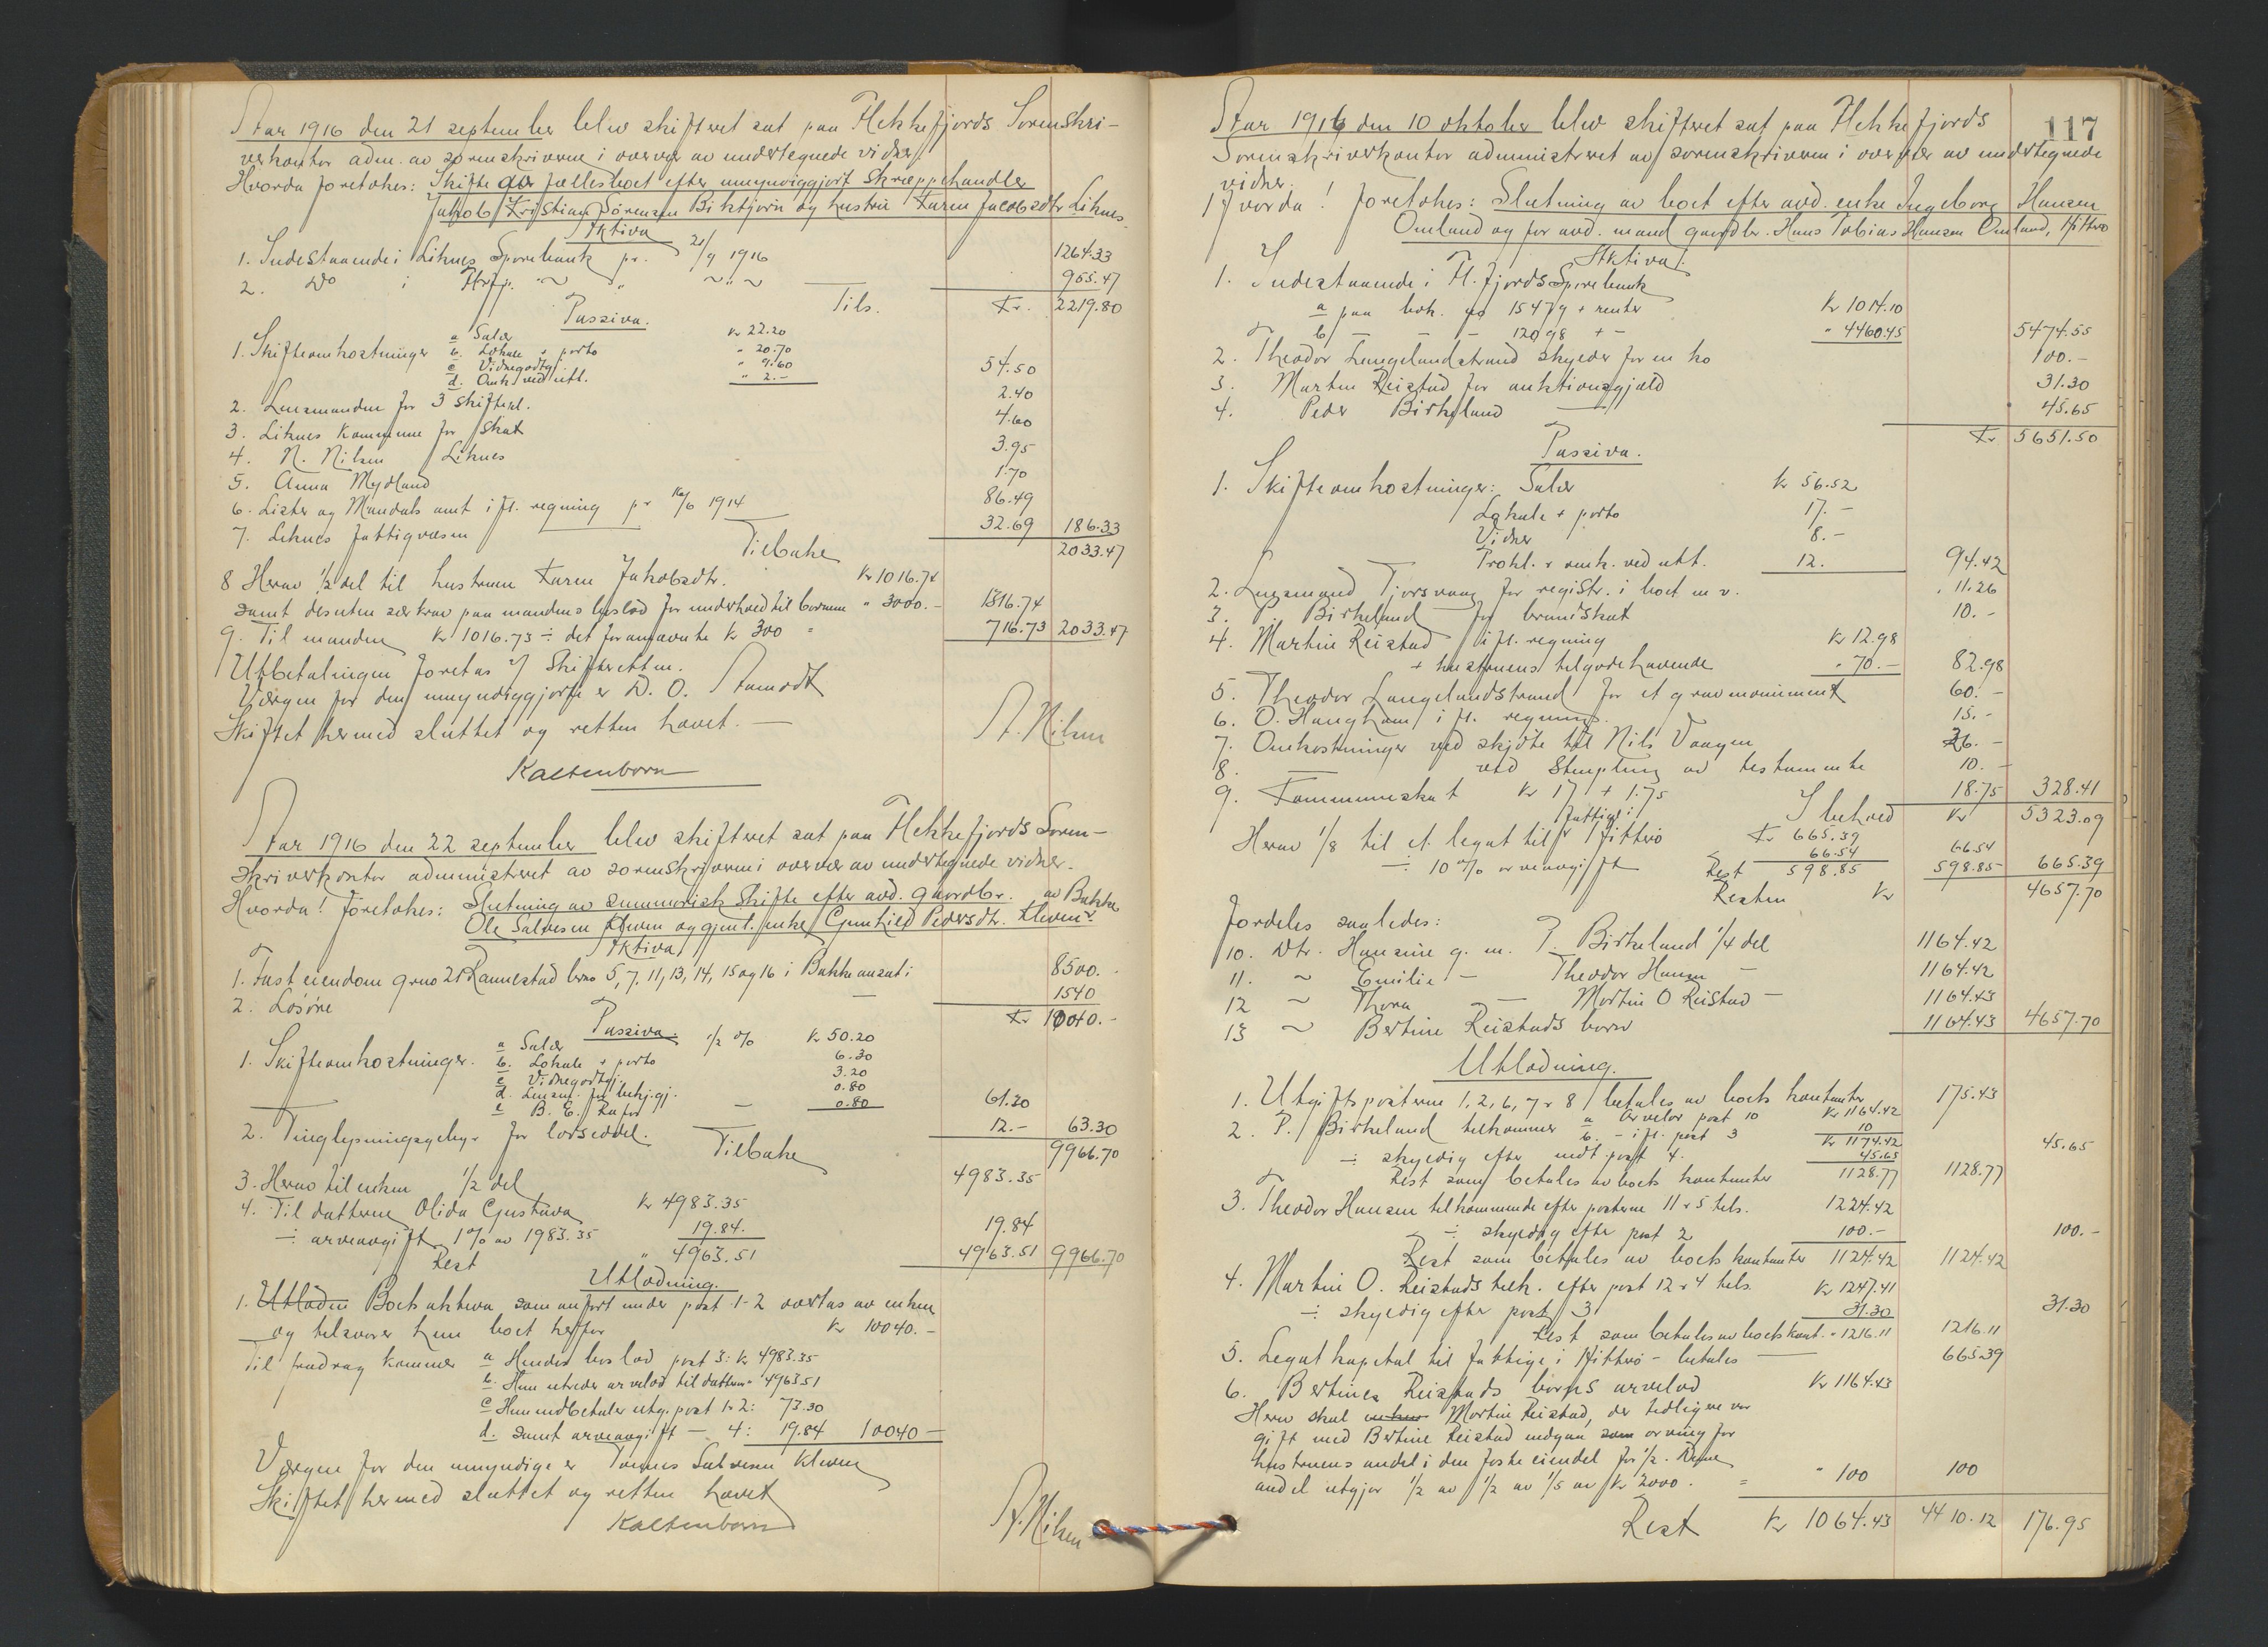 Aar 1916 den 21 september blev skifteret sat paa Flekkefjords Sorenskri-
verkontor adm. av sorenskriveren i overvær av undertegnede vidner.
Hvorda foretokes: Skifte over fællesboet efter umyndiggjort Skræppehandler
Jakob Kristian Sörensen Birktjörn og hustru Karen Jacobsdtr Liknes.
Aktiva
1. Indestaaende i Liknes Sparebank pr. 21/9 1916 1264.33
2. Do i Flkfj. ~ " ~ " ~ 955.47
Tils. Kr. 2219.80
Passiva.
1. Skifteomkostninger a Salær Kr 22.20
b. Lokale + porto " 20.70
c Vidnegodtgj. " 9.60
d. Omk. ved utl. " 2.- 54.50
2. Lensmanden for 3 skiftepl. 2.40
3. Liknes kommune for skat 4.60
4. N. Nilsen Liknes 3.95
5. Anna Mydland 1.70
6. Lister og Mandals amt ifl. regning pr /6 1914 86.49
7. Liknes fattigvæsen 32.69 186.33
Tilbake 2033.47
8 Herav 1/2 del til hustruen Karen Jakobsdtr. Kr 1016.74
samt desuten særkrav paa mandens boslod for underhold til barnene " 300.- 1316.74
9. Til manden Kr 1016.73 ÷ det foranførte kr 300 = 716.73 2033.47
Utbetalingen foretas af skifteretten.
Værgen for den umyndiggjorte er D. O. Stamodt
Skiftet hermed sluttet og retten hævet. —
A. Nilsen
Kaltenborn
Aar 1916 den 22 september blev skifteret sat paa Flekkefjords Soren-
skriverkontor administreret av sorenskriveren i overvær av undertegnede vidner.
Hvorda! foretokes: Slutning av summarisk skifte efter avd. gaardbr. av Bakke
Ole Salvesen Kleven og gjenl. enke Gunhild Pedersdtr. Kleven
Aktiva
1. Fast eiendom gno 21 Rannestad bno 5, 7, 11, 13, 14, 15 og 16 i Bakke ansat i 8500.-
2. Løsøre — 1540
Kr 10040.-
Passiva. 1/2 %
1. Skifteomkostninger. a Salær Kr 50.20
b. Lokale + porto 6.30
c Vidnegodtgj. 3.20
d. Lensm. for bekj.gj. 0.80
e B. E. Rafos — 0.80 61.30
2. Tinglysningsgebyr for lodseddel. 12.- 63.30
Tilbake 9966.70
3. Herav til enken 1/2 del 4983.35
4. Til datteren Olida Gustava Kr 4983.35
÷ arveavgift 1% av 1983.35 19.84. 19.84
Rest " 4963.51 4963.51 9966.70
Utlodning.
1. Utloden Boets aktiva som anført under post 1-2 overtas av enken
og tilsvarer hun boet herfor Kr 10040.-
Til fradrag kommer a Hendes boslod post 3: Kr 4983.35
b. Hun utreder arvelod til datteren " 4963.51
c Hun indbetaler utg. post 1+2: 73.30
d. samt arveavgift — 4: 19.84 10040 —
Værgen for den umyndige er Tønnes Salvesen Kleven
Skiftet hermed sluttet og retten hævet
Kaltenborn
A. Nilsen
117
Aar 1916 den 10 oktober blev skifteret sat paa Flekkefjords
Sorenskriverkontor administreret av sorenskriveren i overvær av undertegnede
vidner.
Hvorda! foretokes: Slutning av boet efter avd. enke Ingeborg Hansen
Omland og før avd. mand gaardbr. Hans Tobias Hansen Omland, Hitterø
Aktiva.
1. Indestaaende i Fl.fjords Sparebank
a paa bok. no 15479 + renter Kr 1014.10
b — - - 12098 + - " 4460.45 5474.55
2. Theodor Langelandstrand skylder for en ko 100.-
3. Martin Reistad for auktionsgjæld 31.30
4. Peder Birkeland — 45.65
Kr 5651.50
Passiva.
1. Skifteomkostninger: Salær Kr 56.52
Lokale + porto 17. -
Vidner 8. -
Prokl. + omk. ved utl. 12. 94.42
2. Lensmand Tjorsvaag for registr. i boet m v. 11.26
3. P. Birkeland for brandskat 10. -
4. Martin Reistad ifl. regning Kr 12.98
+ hustruens tilgodehavende " 70.- 82.98
5. Theodor Langelandstrand for et gravmoniment 60. -
6. O. Haugham ifl. regning. 15. -
7. Omkostninger ved skjöte til Nils Vaagen 26. -
8. — ved stempling av testamente 10. -
9. Kommuneskat kr 17 + 1.75 18.75 328.41
I behold Kr 5323.09
Herav 1/8 til et legat til fattige i Hitterø Kr 665.39
÷ 10 % arveavgift 66.54 66.54
Rest 598.85 598.85 665.39
Resten Kr 4657.70
fordeles saaledes:
10. Dtr. Hansine g. m. P. Birkeland 1/4 del 1164.42
11. ~ Emilie — Theodor Hansen — 1164.42
12 ~ Thora — Martin O Reistad — 1164.43
13 ~ Bertine Reistads barn 1164.43 4657.70
Utlodning.
1. Utgiftsposterne 1, 2, 6, 7 + 8 betales av boets kontanter 175.43
2. P. Birkeland tilkommer a Arvelod post 10 Kr 1164.42
b. - ifl. post 3 10
Kr 1174.42
÷ skyldig efter indt. post 4. 45.65 45.65
Rest som betales av boets kontanter 1128.77 1128.77
3. Theodor Hansen tilkommende efter posterne 11 + 5 tils. 1224.42
÷ skyldig efter post 2 100.- 100.-
Rest som betales av boets kontanter 1124.42 1124.42
4. Martin O. Reistads tilk. efter post 12 + 4 tils. Kr 1247.41
÷ skyldig efter post 3 31.30 31.30
Rest som betales av boets kont. " 1216.11 1216.11
5. Legatkapital til fattige i Hitterö - betales — 665.39
6. Bertines Reistads barns arvelod Kr 1164.43
Herav skal enken Martin Reistad, der tidligere var
gift med Bertine Reistad indgaa som arving for
hustruens andel i den faste eiendel for 1/2. Denne
andel utgjør 1/2 av 1/2 av 1/5 av Kr 2000. = " 100 100
Rest Kr 1064.43 4410.12 176.95